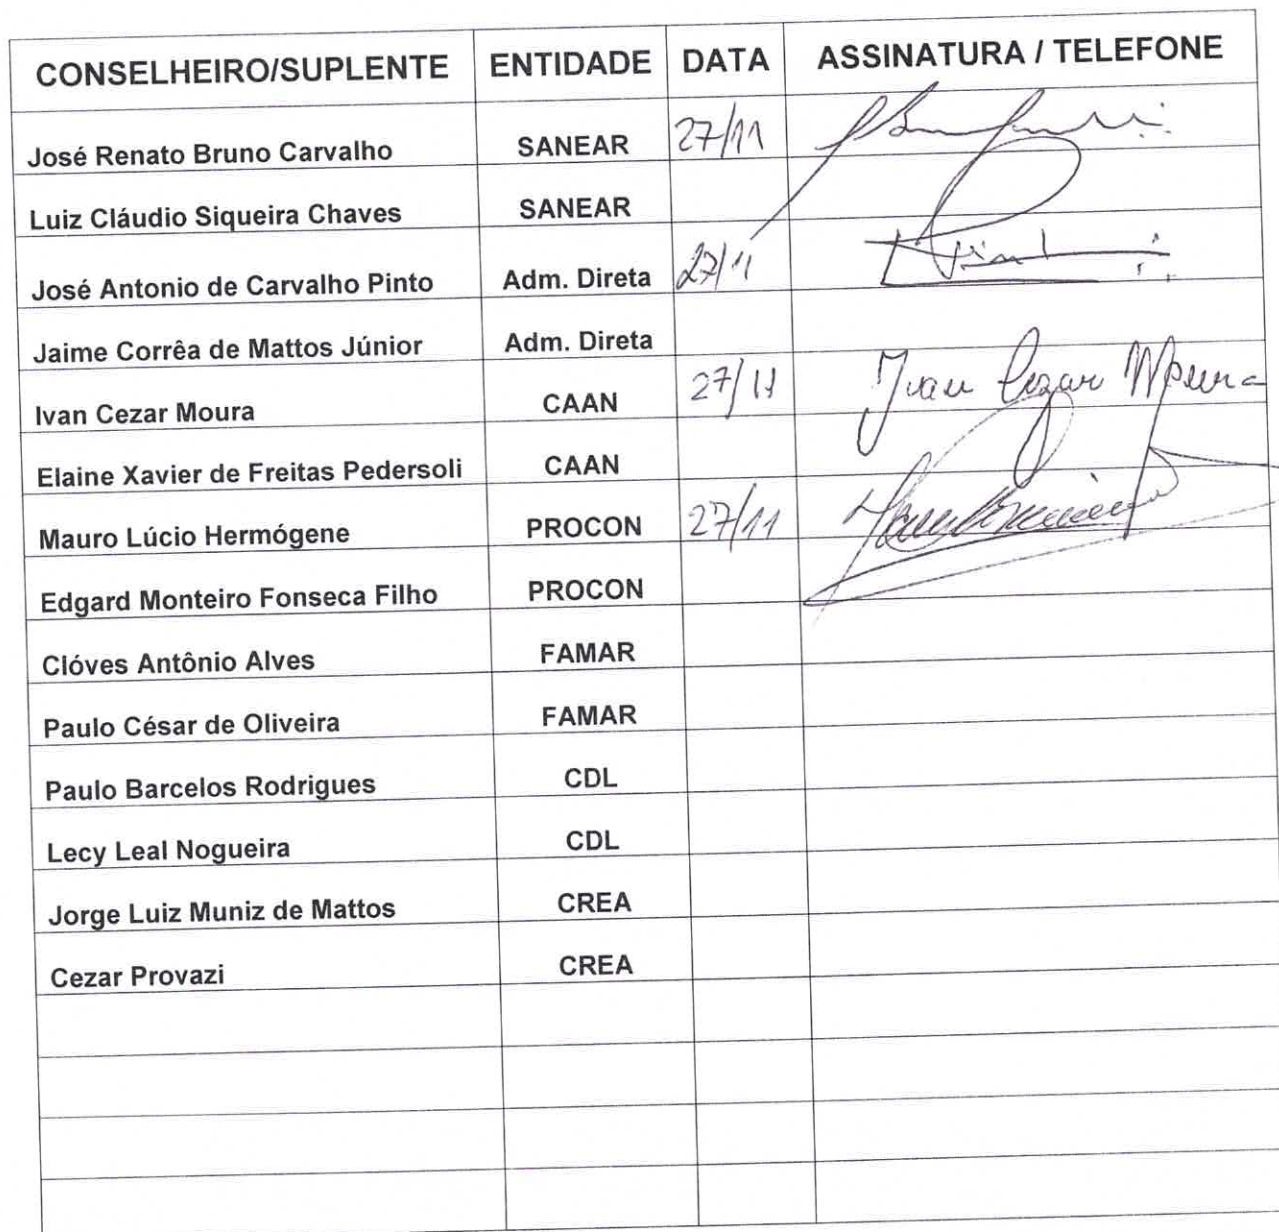 CONSELHEIRO/SUPLENTE ENTIDADE DATA ASSINATURA / TELEFONE
José Renato Bruno Carvalho SANEAR 27/11
Luiz Cláudio Siqueira Chaves SANEAR
José Antonio de Carvalho Pinto Adm. Direta 27/11
Jaime Corrêa de Mattos Júnior Adm. Direta
Ivan Cezar Moura CAAN 27/11 Ivan Cezar Moura
Elaine Xavier de Freitas Pedersoli CAAN
Mauro Lúcio Hermógene PROCON 27/11
Edgard Monteiro Fonseca Filho PROCON
Clóves Antônio Alves FAMAR
Paulo César de Oliveira FAMAR
Paulo Barcelos Rodrigues CDL
Lecy Leal Nogueira CDL
Jorge Luiz Muniz de Mattos CREA
Cezar Provazi CREA